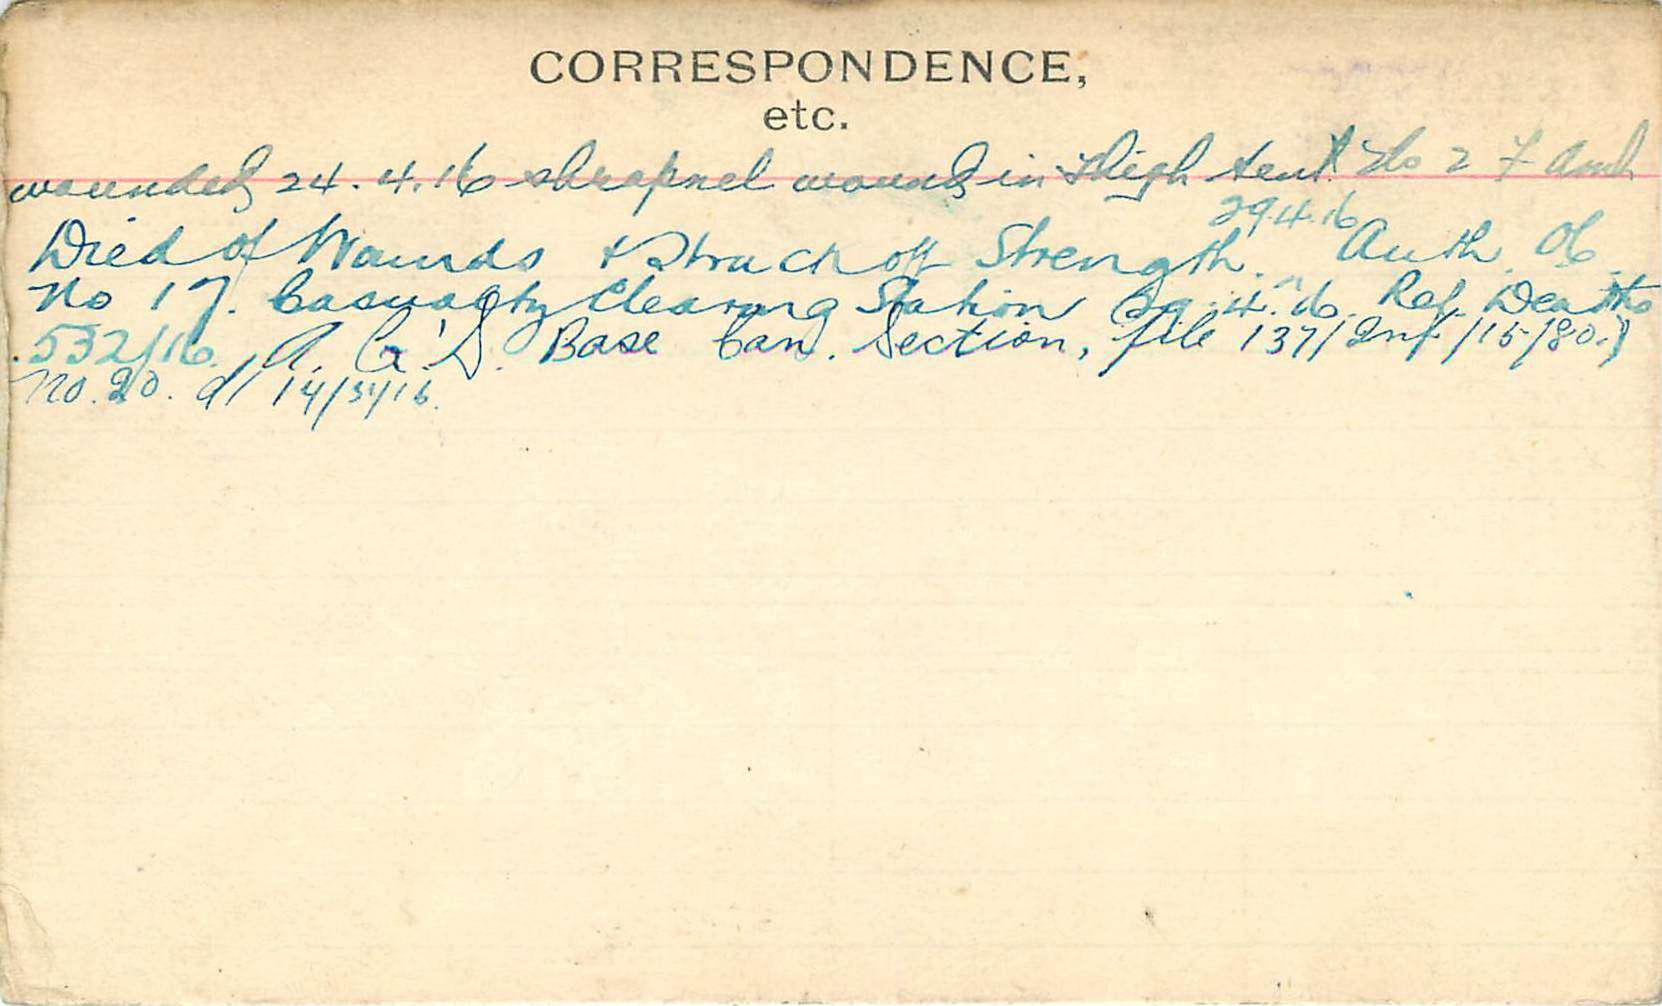 CORRESPONDENCE,
etc.
wounded 24.4.16 shrapnel wound in thigh sent to 2 F Amb
29.4.16
Died of Wounds & Struck off Strength. Auth. OC.
No 17. Casualty Clearing Station 29.4.16. Ref. Deaths
532/16. A. G's. Base Can. Section, file 137/Inf/15/80.)
No. 20. d/ 14/5/16.